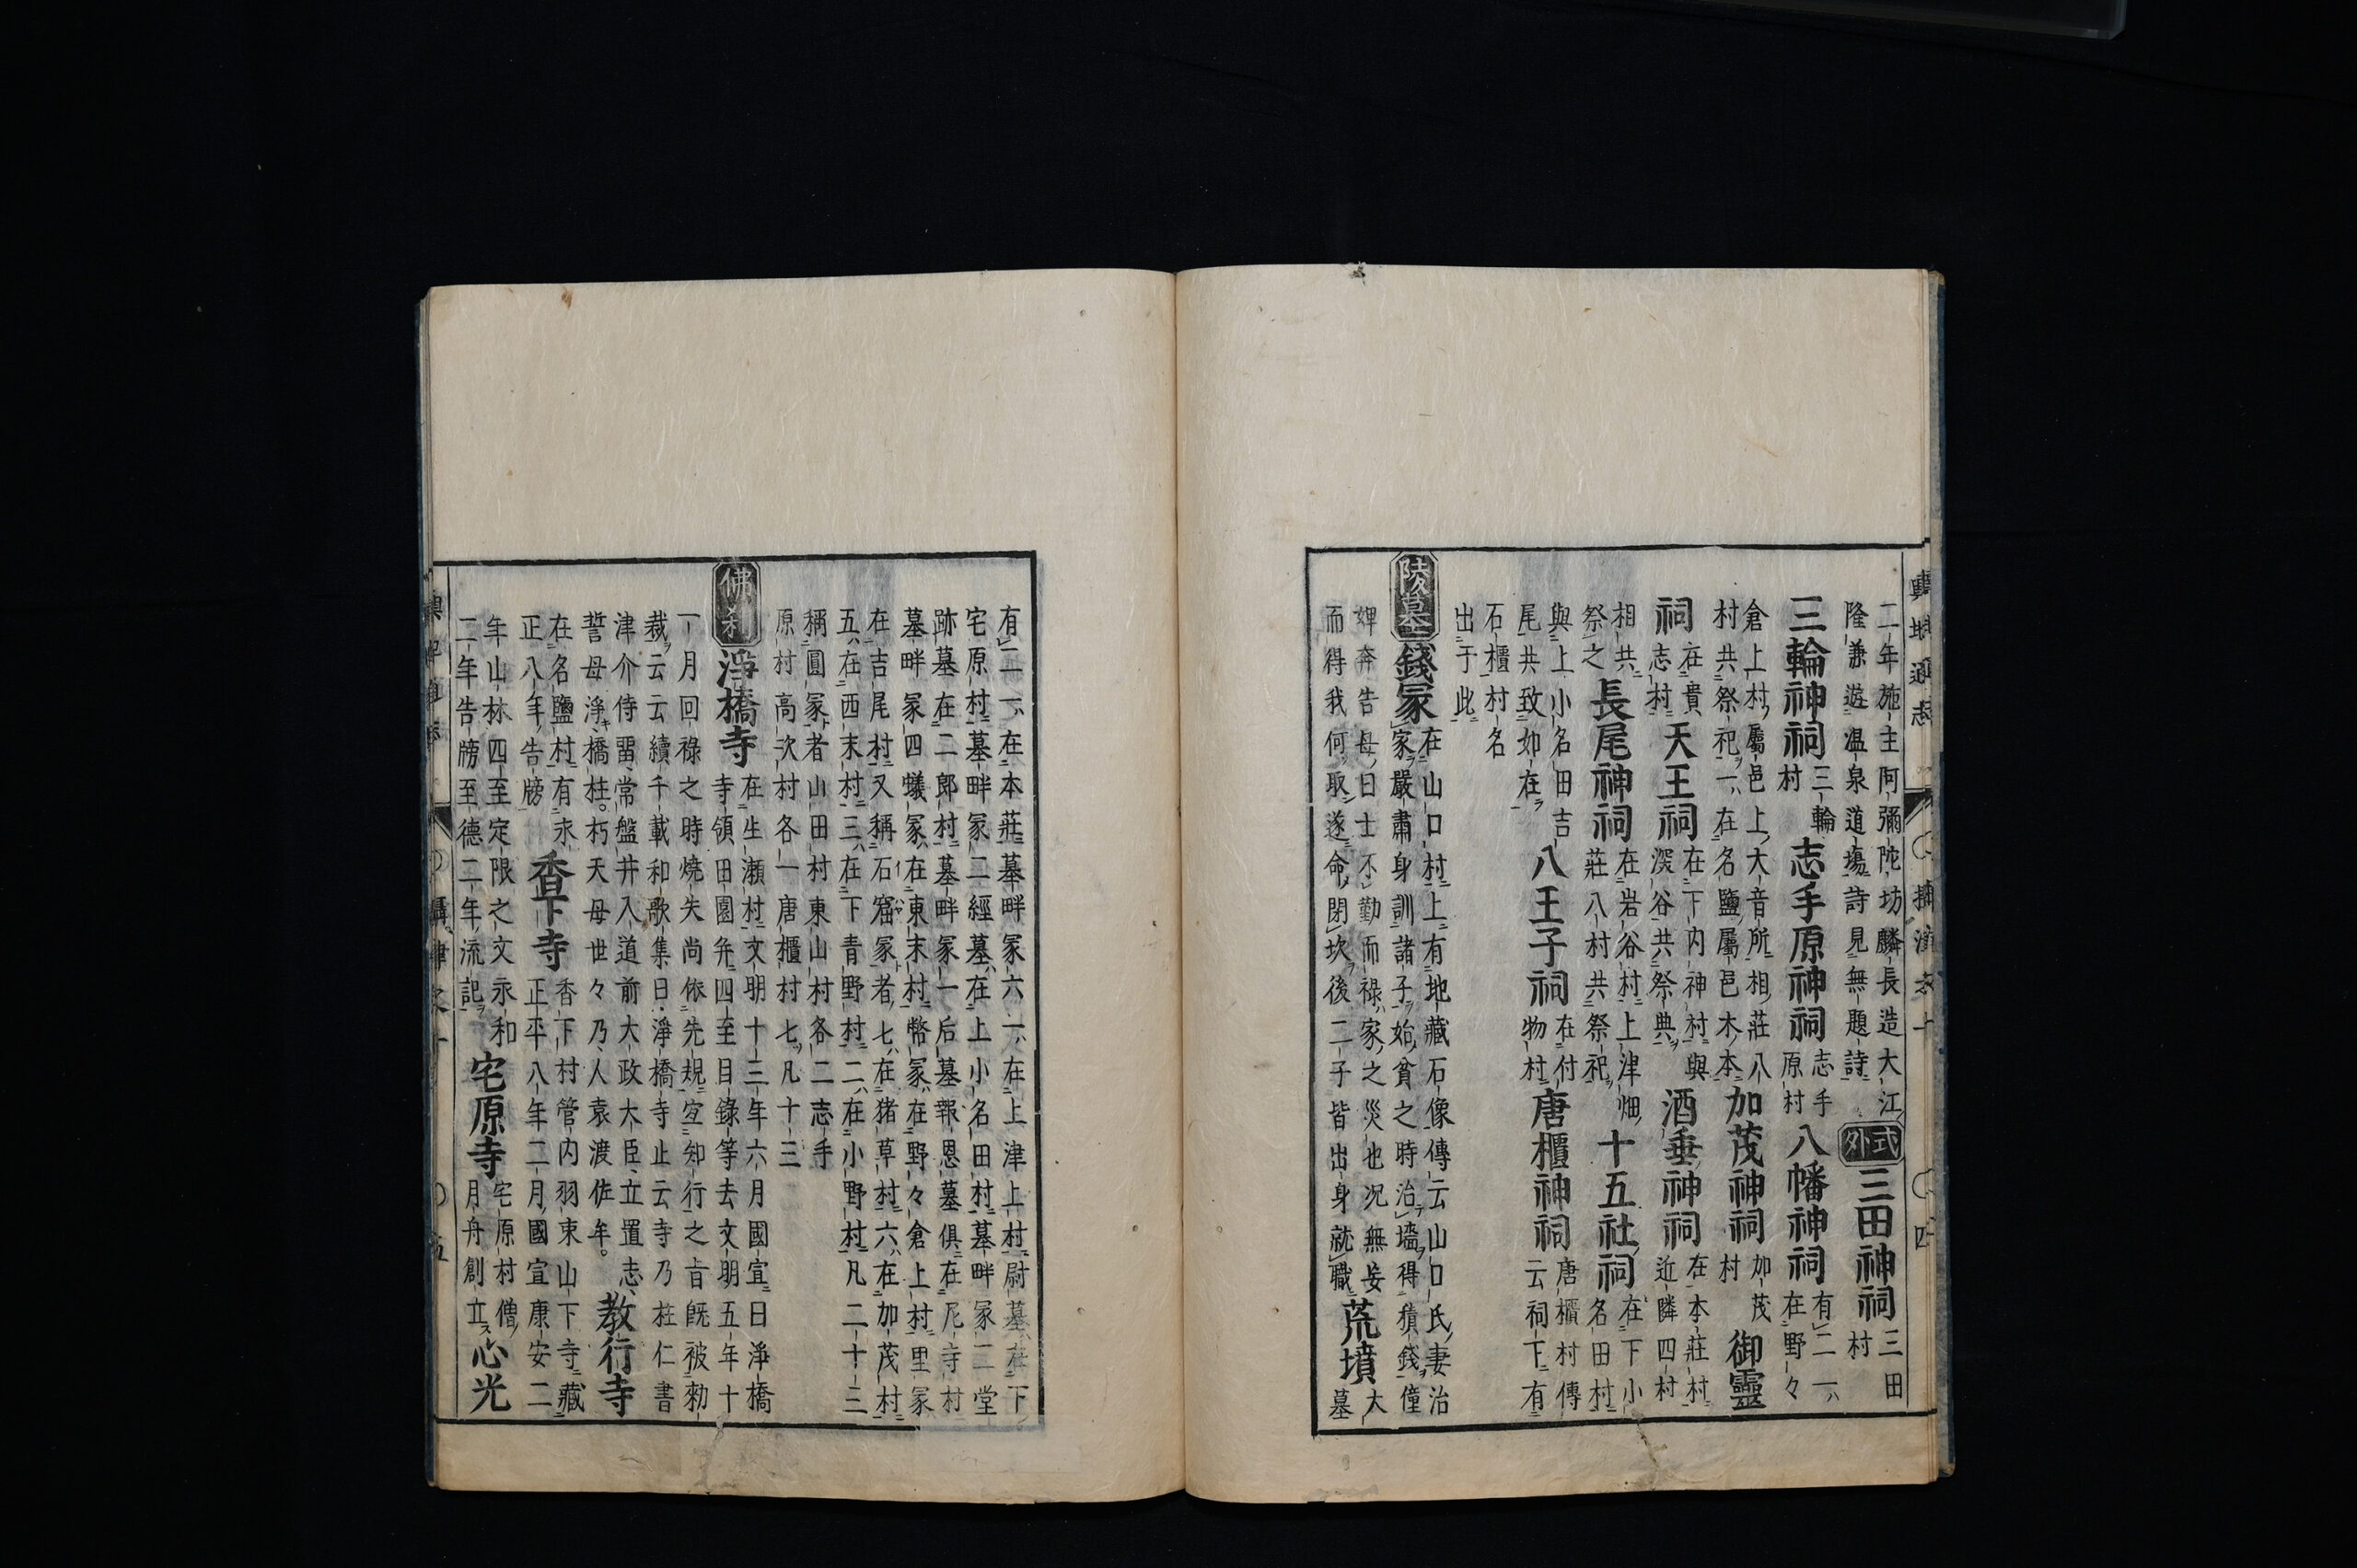 二年施主阿彌陀坊麟長造大江
隆兼遊温泉道塲詩見無題詩
式外
三田神祠
三田
村
三輪神祠
三輪
村
志手原神祠
志手
原村
八幡神祠
有二一在野々
倉上村屬邑上大音所相莊八
村共祭祀一在名鹽屬邑木本
加茂神祠
加茂
村
御靈
祠
在貴
志村
天王祠
在下内神村與
深谷共祭典
酒垂神祠
在本莊村
近隣四村
相共
祭之
長尾神祠
在岩谷村上津畑
莊八村共祭祀
十五社祠
在下小
名田村
與上小名田吉
尾共致如在
八王子祠
在付
物村
唐櫃神祠
唐櫃村傳
云祠下有
石櫃村名
出于此
陵墓
錢冢
在山口村上有地藏石像傳云山口氏妻治
家嚴肅身訓諸子始貧之時治墻得積錢僮
婢奔告母曰士不勤而祿家之災也况無妄
而得我何取遂命閉坎後二子皆出身就職
荒墳
大
墓
有二一在本莊墓畔冢六一在上津上村尉墓在下
宅原村墓畔冢二經墓在上小名田村墓畔冢二堂
跡墓在二郎村墓畔冢一后墓報恩墓俱在尼寺村
墓畔冢四蟻冢在東末村幣冢在野々倉上村里冢
在吉尾村又稱石窟冢者七在猪草村六在加茂村
五在西末村三在下青野村二在小野村凡二十三
稱圓冢者山田村東山村各二志手
原村高次村各一唐櫃村七凡十三
佛刹
淨橋寺
在生瀬村文明十三年六月國宣曰淨橋
寺領田園并四至目錄等去文明五年十
一月回祿之時燒失尚依先規宜知行之旨既被勅
裁云云續千載和歌集曰淨橋寺止云寺乃柱仁書
津介侍留常盤井入道前大政大臣立置志
誓母淨橋柱朽天母世々乃人袁渡佐牟
教行寺
在名鹽村有永
正八年告牓
香下寺
香下村管内羽束山下寺藏
正平八年二月國宣康安二
年山林四至定限之文永和
二年告牓至德二年流記
宅原寺
宅原村僧
月舟創立
心光